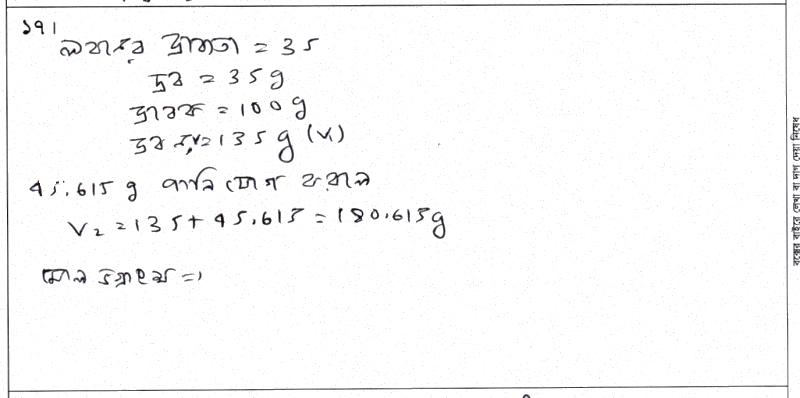 ১৭।
লবনের দ্রাব্যতা = 35
দ্রব = 35g
দ্রাবক = 100g
দ্রবন = 135g (V₁)
45.615 g পানি যোগ করলে
V₂ = 135 + 45.615 = 180.615g
মোল ভগ্নাংশ =
বক্সের বাইরে লেখা বা দাগ দেয়া নিষেধ